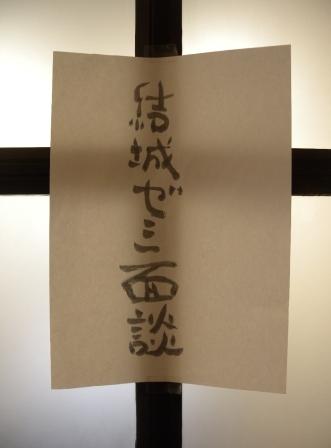 結城ゼミ面談